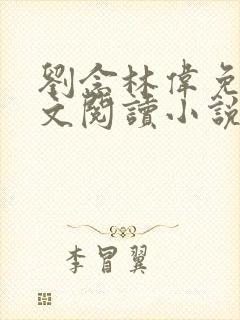 劉念林偉免
文閱讀小說
李冒翼